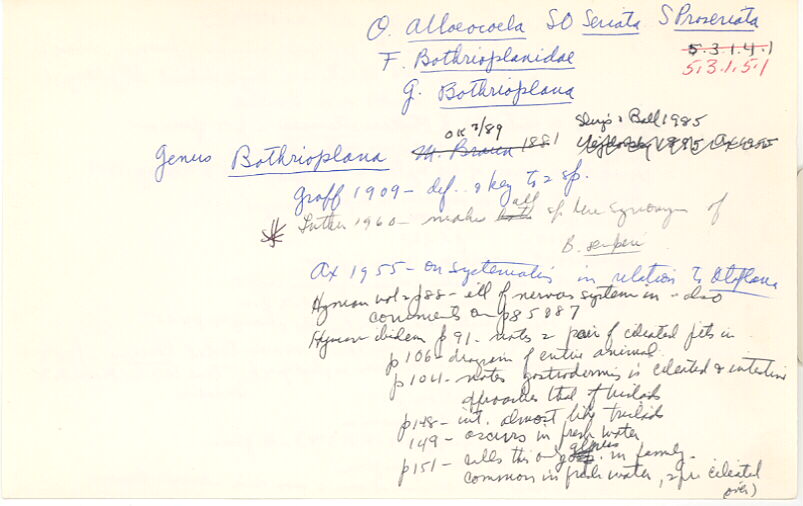 O. Alloeocoela SO Seriata S Proseriata
F. Bothrioplanidae
5.3.1.4.1
5.3.1.5.1
G. Bothrioplana
OK 2/89
Sluys & Ball 1985
Genus Bothrioplana M. Braun 1881
Graff 1909 - def. & key to 2 sp.
Luther 1960 - makes both all sp here synonyms of
B. semperi
Ax 1955 - on systematics in relation to Otoplana
Hyman vol 2 p88 - ill of nervous system in - also
comments on p85 & 87
Hyman ibidem p 91 - notes 2 pair of ciliated pits in
p 106 - diagram of entire animal
p 104 - notes gastrodermis is ciliated & intestine
approaches that of triclads
p 148 - int. almost like triclads
149 - occurs in fresh water
p 151 - calls this only genus in family -
common in fresh water, 2 pr ciliated
over)